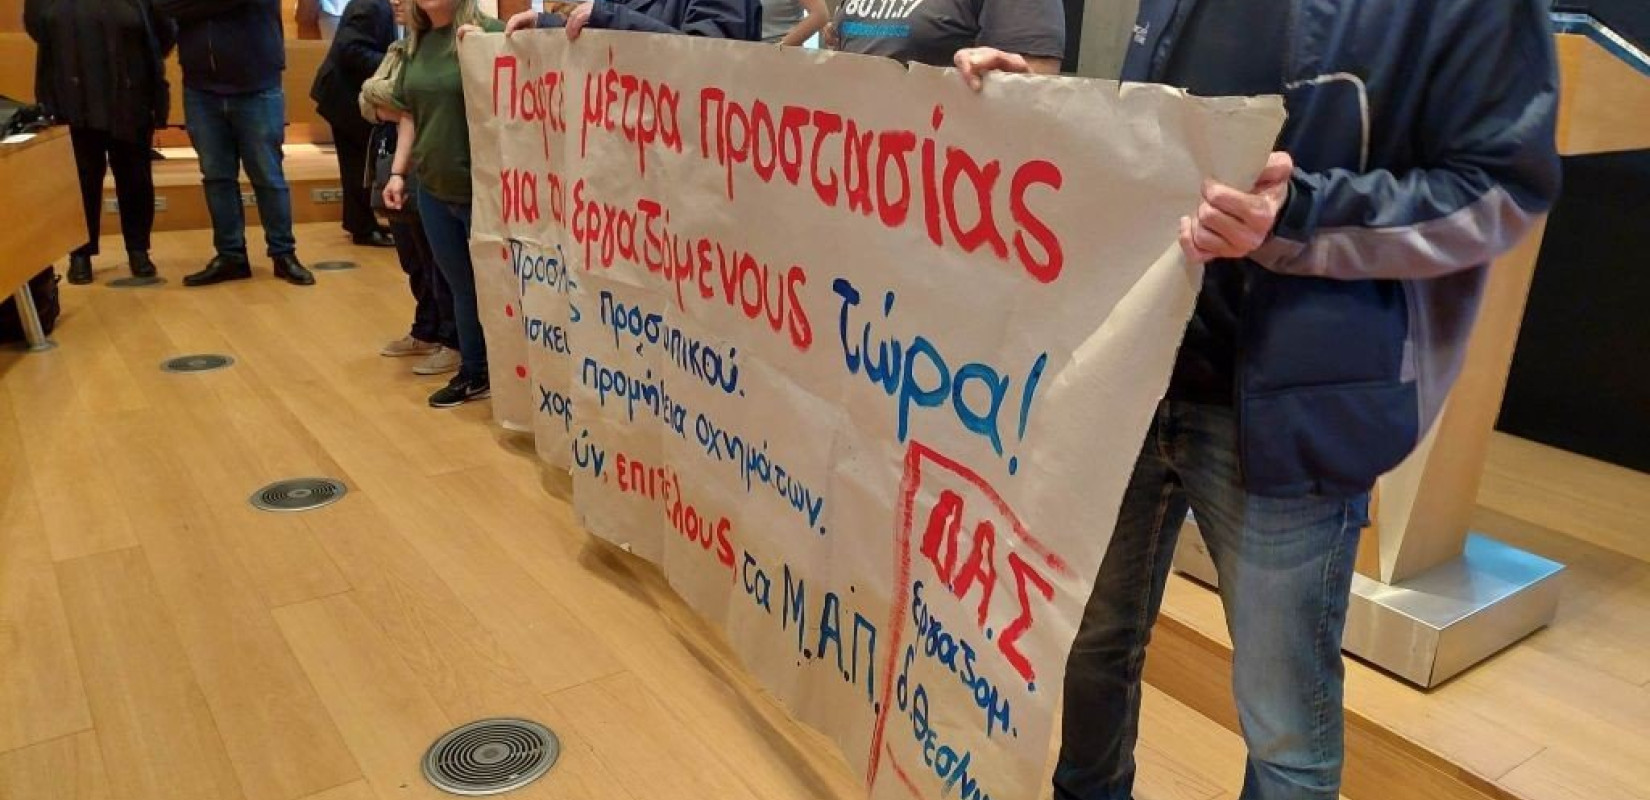 80.11.17
Πάρτε μέτρα προστασίας
για τους εργαζόμενους τώρα!
• Προσλ ς προσωπικού.
• ισκευ προμήθεια οχημάτων.
• χορ ούν, επιτέλους, τα Μ.Α.Π.
Δ.Α.Σ.
εργαζομ.
δ. Θεσ/νικ